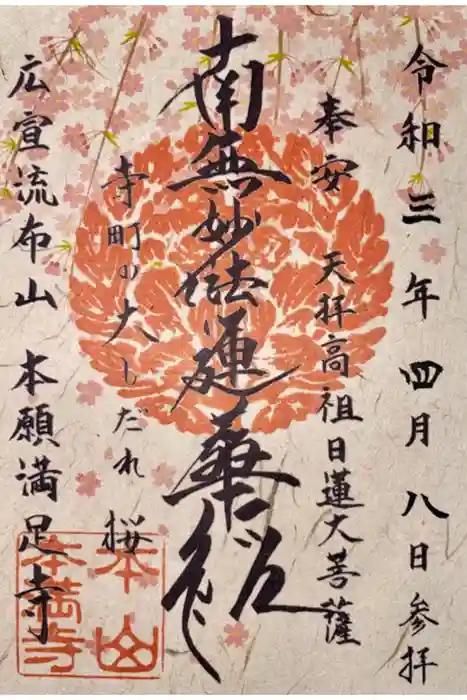 令和三年四月八日参拝
奉安 天拝高祖日蓮大菩薩
南無妙法蓮華経
寺町の大しだれ桜
広宣流布山 本願満足寺
本山
本満寺